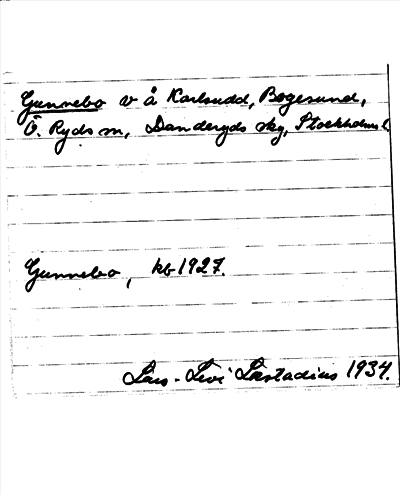 Gunnebo v å Karlsudd, Bogesund,
Ö. Ryds sn, Danderyds skg, Stockholms l.
Gunnebo, kb 1927.
Lars-Levi Læstadius 1934.